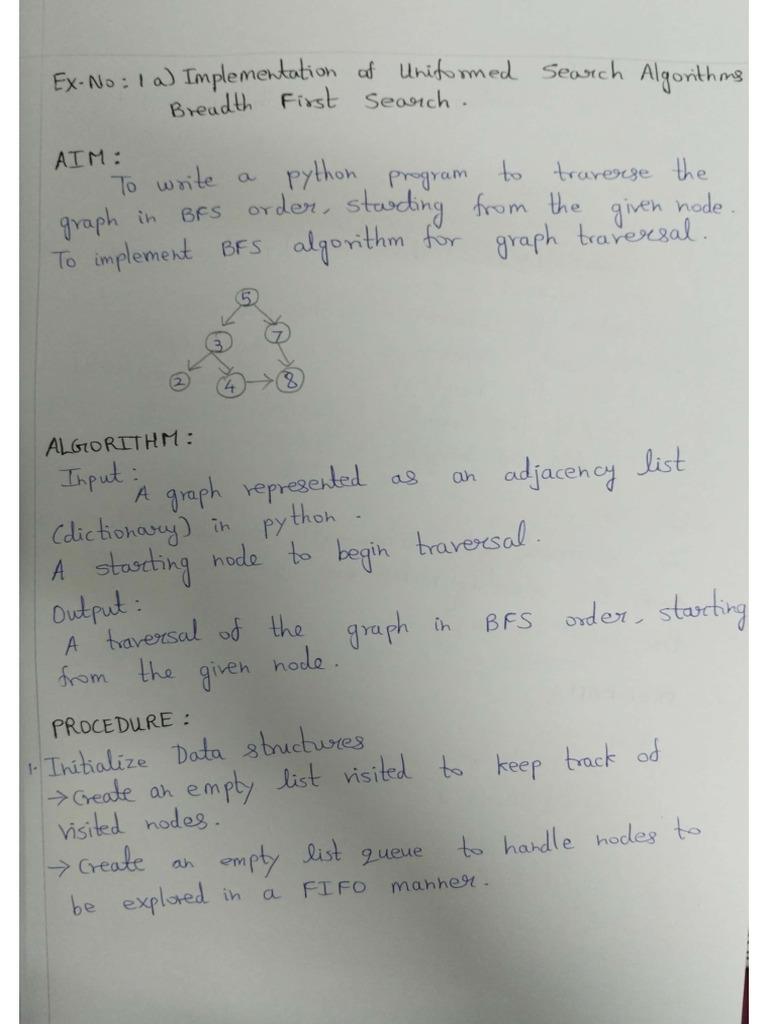 Ex-No: 1 a) Implementation of Uniformed Search Algorithms
Breadth First Search.
AIM:
To write a python program to traverse the
graph in BFS order, starting from the given node.
To implement BFS algorithm for graph traversal.
5
3 7
2 4 8
ALGORITHM:
Input:
A graph represented as an adjacency list
(dictionary) in python.
A starting node to begin traversal.
Output:
A traversal of the graph in BFS order, starting
from the given node.
PROCEDURE:
1. Initialize Data structures
→ Create an empty list visited to keep track of
visited nodes.
→ Create an empty list queue to handle nodes to
be explored in a FIFO manner.